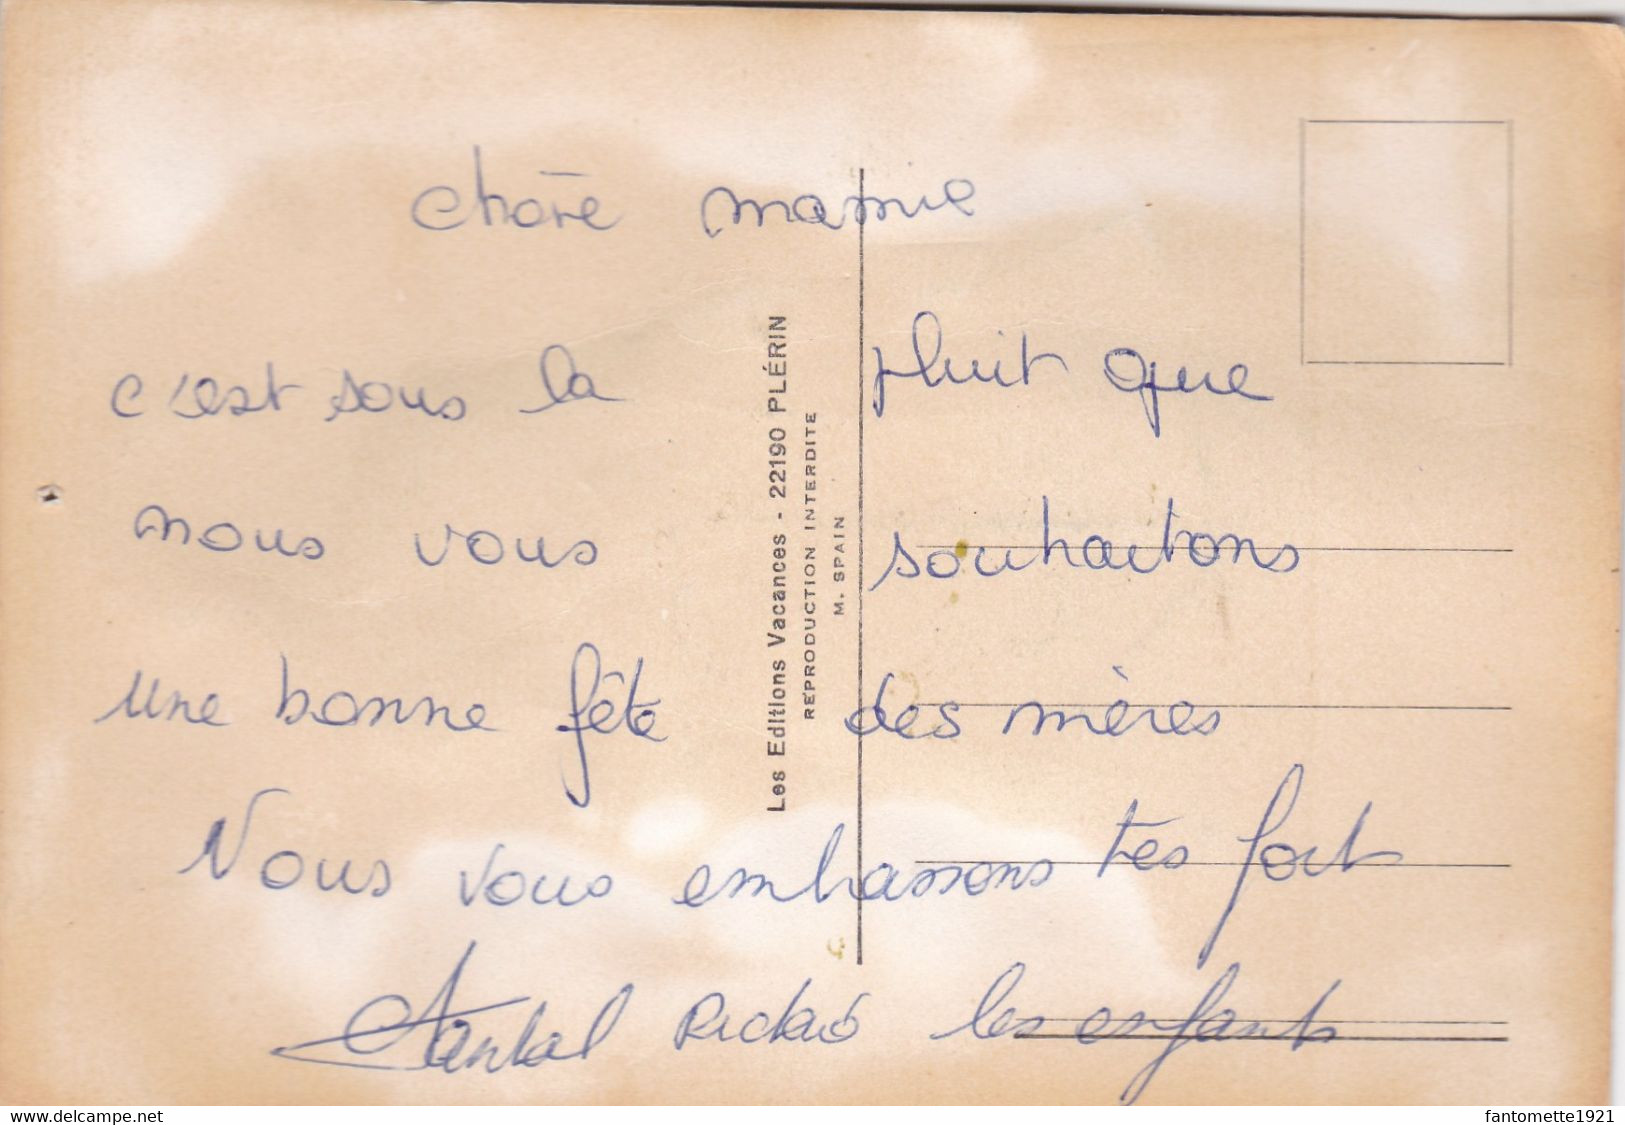 chère mamie
c'est sous la pluit que
nous vous souhaitons
une bonne fête des mères
Nous vous embrassons tes fort
Chantal les enfants
Les Editions Vacances - 22190 PLÉRIN
REPRODUCTION INTERDITE
M. SPAIN
www.delcampe.net
fantomette1921